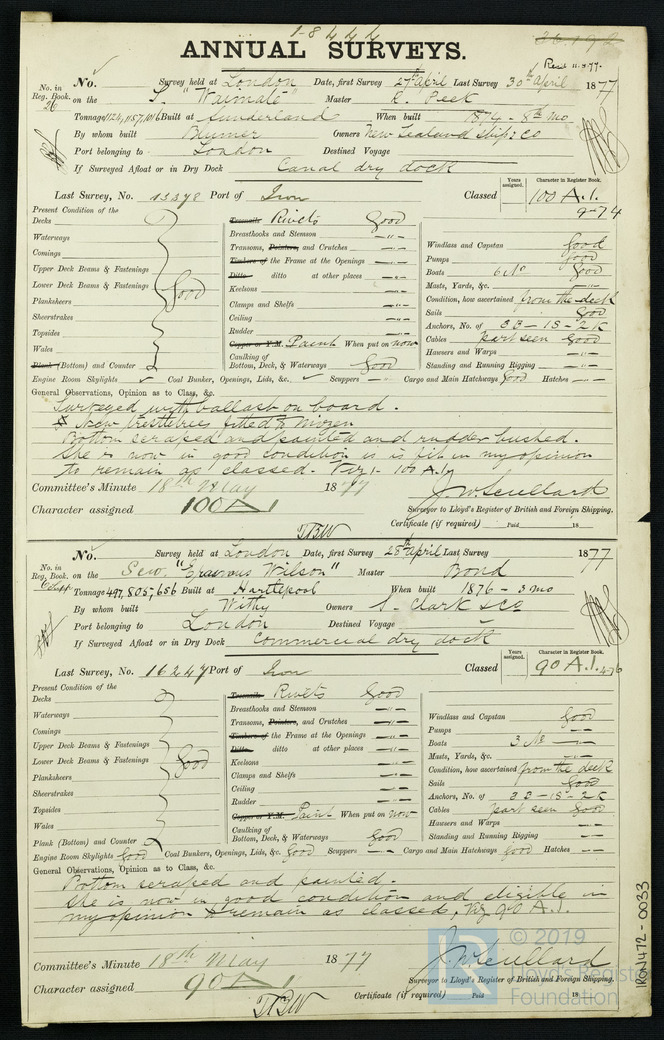 1-8444
ANNUAL SURVEYS.
No. Survey held at London Date, first Survey 27th April Last Survey 30th April 1877
No. in Reg. Book. 26 on the S. "Waimate" Master R. Peek
Tonnage 1124,1157,1016 Built at Sunderland When built 1874 - 8th Mo
By whom built Blumer Owners New Zealand Ship: Co
Port belonging to London Destined Voyage
If Surveyed Afloat or in Dry Dock Canal dry dock
Last Survey, No. 13378 Port of Iron Classed Years assigned. Character in Register Book. 100 A.1. 9-74
Present Condition of the
Decks
Waterways
Comings
Upper Deck Beams & Fastenings
Lower Deck Beams & Fastenings Good
Planksheers
Sheerstrakes
Topsides
Wales
Plank (Bottom) and Counter
Treenails Rivets Good
Breasthooks and Stemson -"-
Transoms, Pointers, and Crutches -"-
Timbers of the Frame at the Openings -"-
Ditto ditto at other places -"-
Keelsons -"-
Clamps and Shelfs -"-
Ceiling -"-
Rudder -"-
Copper or Y.M. Paint When put on now
Caulking of Bottom, Deck, & Waterways Good
Windlass and Capstan Good
Pumps Good
Boats 6 No Good
Masts, Yards, &c. -"-
Condition, how ascertained from the deck
Sails Good
Anchors, No. of 3B-1S-2K
Cables part seen Good
Hawsers and Warps -"-
Standing and Running Rigging -"-
Engine Room Skylights Coal Bunker, Openings, Lids, &c. Scuppers Cargo and Main Hatchways Good Hatches -"-
General Observations, Opinion as to Class, &c.
Surveyed with ballast on board.
New trestletrees fitted to mizen
Bottom scraped and painted and rudder bushed.
She is now in good condition & is fit in my opinion
to remain as classed. Viz 1- 100 A.1.
Committee's Minute 18th May 1877 J. W. Scullard
Character assigned 100 A 1 Surveyor to Lloyd's Register of British and Foreign Shipping.
Certificate (if required) Paid 18
No. Survey held at London Date, first Survey 28th April Last Survey 1877
No. in Reg. Book. on the Scw. Wilson" Master Bond
Tonnage 497,805,656 Built at Hartlepool When built 1876 - 3 mo
By whom built Withy Owners S. Clark & Co
Port belonging to London Destined Voyage
If Surveyed Afloat or in Dry Dock Commercial dry dock
Last Survey, No. 16247 Port of Iron Classed Years assigned. Character in Register Book. 90 A.1. 4-76
Present Condition of the
Decks
Waterways
Comings
Upper Deck Beams & Fastenings
Lower Deck Beams & Fastenings Good
Planksheers
Sheerstrakes
Topsides
Wales
Plank (Bottom) and Counter
Treenails Rivets Good
Breasthooks and Stemson -"-
Transoms, Pointers, and Crutches -"-
Timbers of the Frame at the Openings -"-
Ditto ditto at other places -"-
Keelsons -"-
Clamps and Shelfs -"-
Ceiling -"-
Rudder -"-
Copper or Y.M. Paint When put on now
Caulking of Bottom, Deck, & Waterways Good
Windlass and Capstan Good
Pumps -"-
Boats 3 No -"-
Masts, Yards, &c. -"-
Condition, how ascertained from the deck
Sails Good
Anchors, No. of 3B-1S-2K
Cables part seen Good
Hawsers and Warps -"-
Standing and Running Rigging -"-
Engine Room Skylights Good Coal Bunkers, Openings, Lids, &c. Good Scuppers -"- Cargo and Main Hatchways Good Hatches -"-
General Observations, Opinion as to Class, &c.
Bottom scraped and painted.
She is now in good condition and eligible in
my opinion to remain as classed, viz 90 A.1.
Committee's Minute 18th May 1877 J. W. Scullard
Character assigned 90 A 1 Surveyor to Lloyd's Register of British and Foreign Shipping.
Certificate (if required) Paid 18
IRON472-0033
© 2019
Lloyd's Register
Foundation